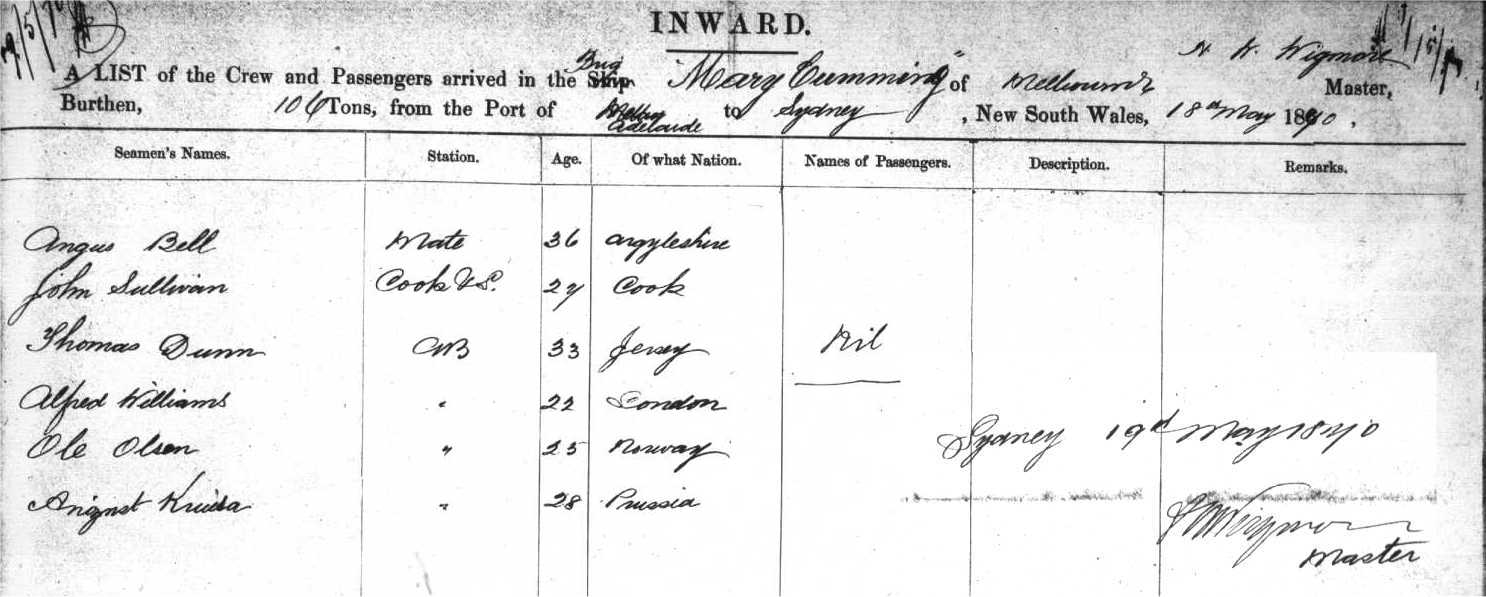 INWARD.
H W Wigmore
A LIST of the Crew and Passengers arrived in the Ship Brig "Mary Cumming" of Melbourne Master,
Burthen, 106 Tons, from the Port of Adelaide to Sydney, New South Wales, 18th May 1870.
Seamen's Names. Station. Age. Of what Nation. Names of Passengers. Description. Remarks.
Angus Bell Mate 36 Argyleshire
John Sullivan Cook & S. 27 Cook
Thomas Dunn AB 33 Jersey Nil
Alfred Williams " 22 London
Ole Olsen " 25 Norway Sydney 19th May 1870
28 Prussia
Master